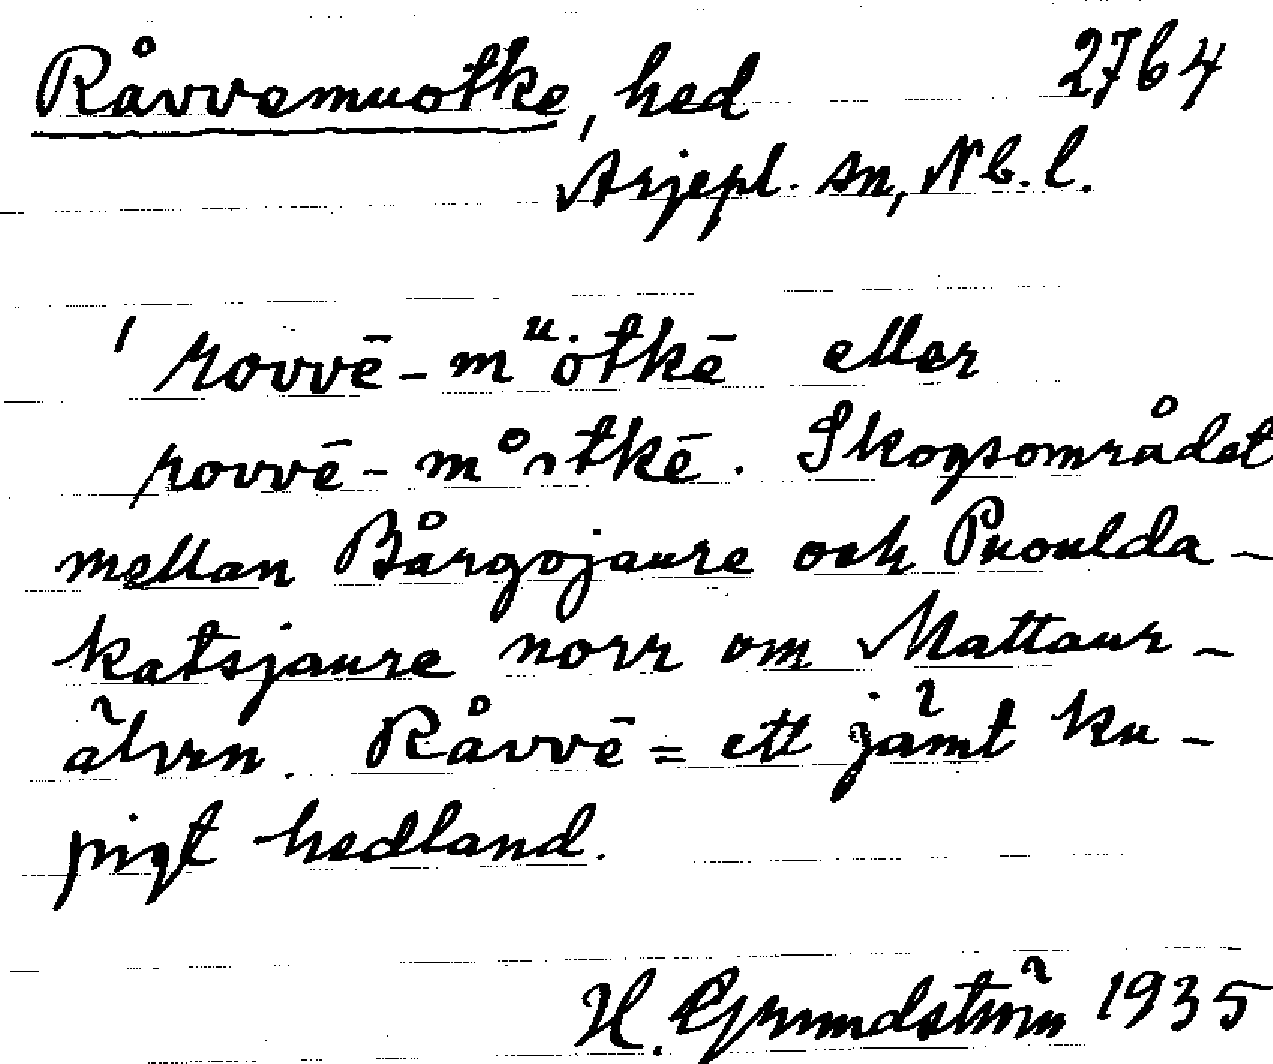 Råvvemuotke, hed 2764
Arjepl. sn, Nb. l.
' rovvē-mᵘȯtkē eller
rovvē-m°ɔtkē. Skogsområdet
mellan Bårgojaure och Puoulda-
katsjaure norr om Mattaur-
älven. Råvvē = ett jämt ku-
pigt hedland.
H. Grundström 1935